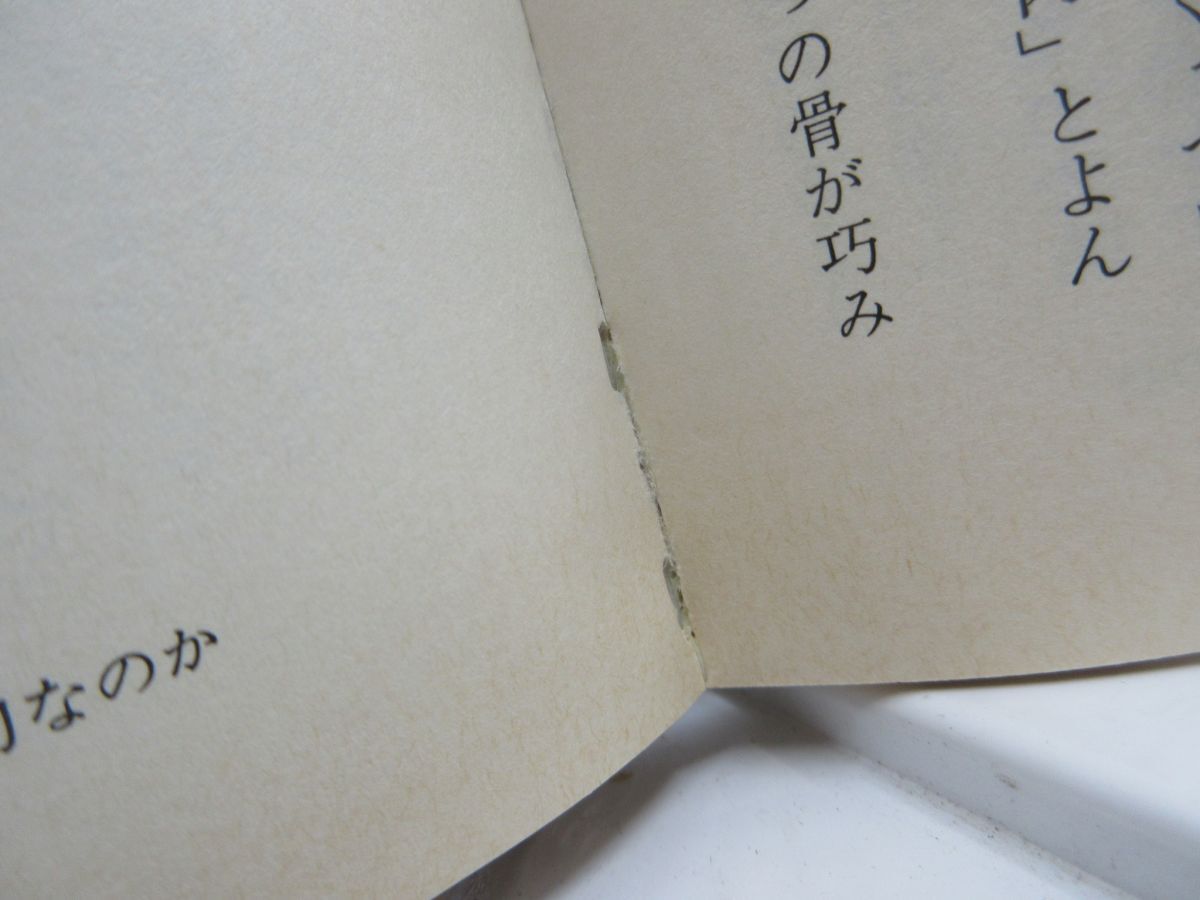 」とよん
の骨が巧み
なのか